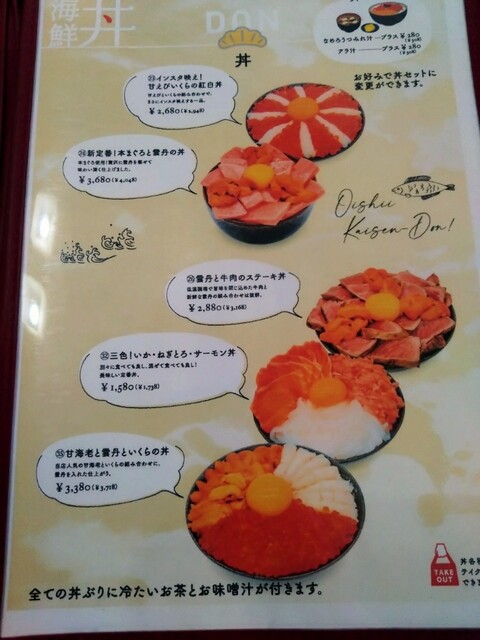 海鮮
丼
DON
丼
なめろうつみれ汁 ープラス ¥280
(¥308)
アラ汁 ープラス ¥280
(¥308)
お好みで丼セットに
変更ができます。
インスタ映え！
甘えびいくらの紅白丼
甘えびといくらの組み合わせで、
まさにインスタ映えする一品。
¥2,680(¥2,948)
新定番！本まぐろと雲丹の丼
¥3,680(¥4,048)
Oishii
Kaisen-Don!
雲丹と牛肉のステーキ丼
低温調理で旨味を閉じ込めた牛肉と
新鮮な雲丹の組み合わせは抜群。
¥2,880(¥3,168)
㉜三色！いか・ねぎとろ・サーモン丼
別々に食べても良し、混ぜて食べても良し！
美味しい定番丼。
¥1,580(¥1,738)
甘海老と雲丹といくらの丼
当店人気の甘海老といくらの組み合わせに、
雲丹を入れた仕上がり。
¥3,380(¥3,718)
TAKE
OUT
丼各種
テイク
でき
全ての丼ぶりに冷たいお茶とお味噌汁が付きます。